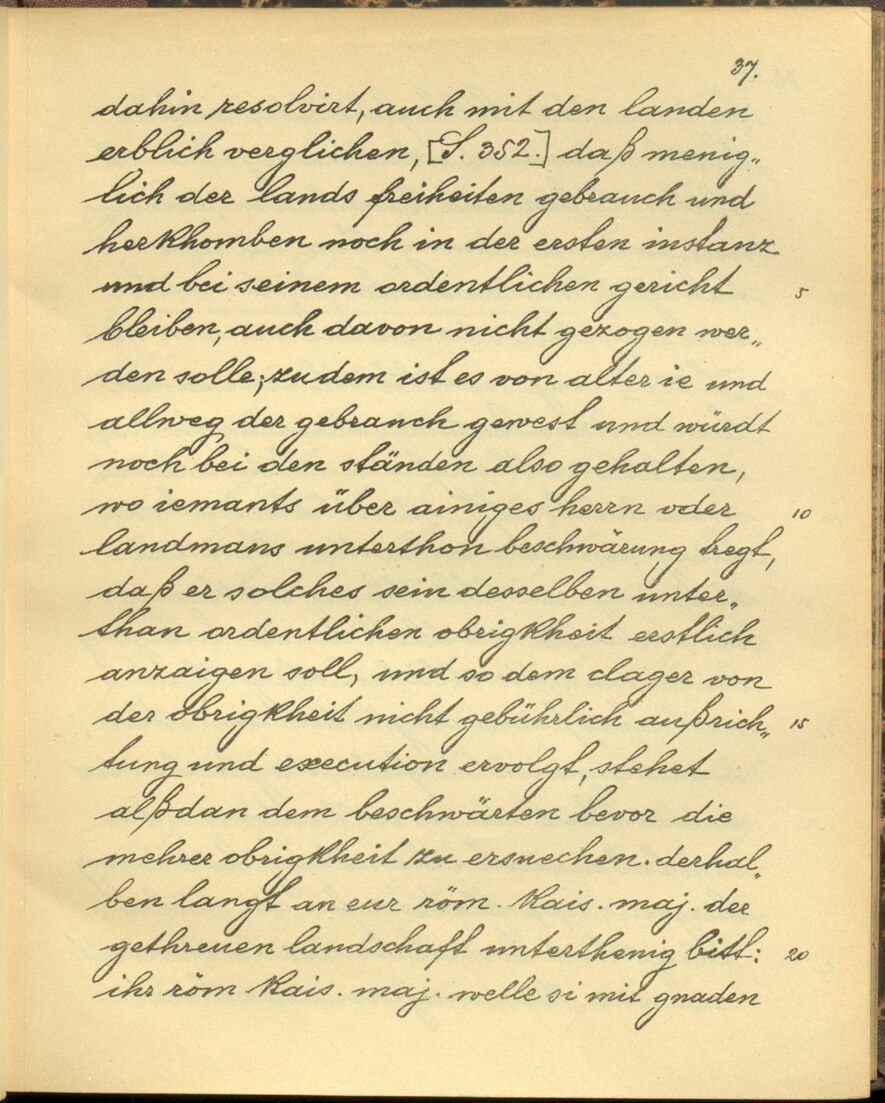 37.
dahin resolvirt, auch mit den landen
erblich verglichen, [S. 352.] daß menig„
lich der lands freiheiten gebrauch und
herkhomben noch in der ersten instanz
und bei seinem ordentlichen gericht 5
bleiben, auch davon nicht gezogen wer„
den solle; zudem ist es von alter ie und
allweg der gebrauch gewest und würdt
noch bei den ständen also gehalten,
wo iemants über ainiges herrn oder 10
landmans unterthon beschwärung tregt,
daß er solches sein desselben unter„
than ordentlichen obrigkheit erstlich
anzaigen soll, und so dem clager von
der obrigkheit nicht gebührlich außrich„ 15
tung und execution ervolgt, stehet
alßdan dem beschwärten bevor die
mehrer obrigkheit zu ersuechen. derhal„
ben langt an eur röm. kais. maj. der
gethreuen landschaft unterthenig bitt: 20
ihr röm kais. maj. welle si mit gnaden